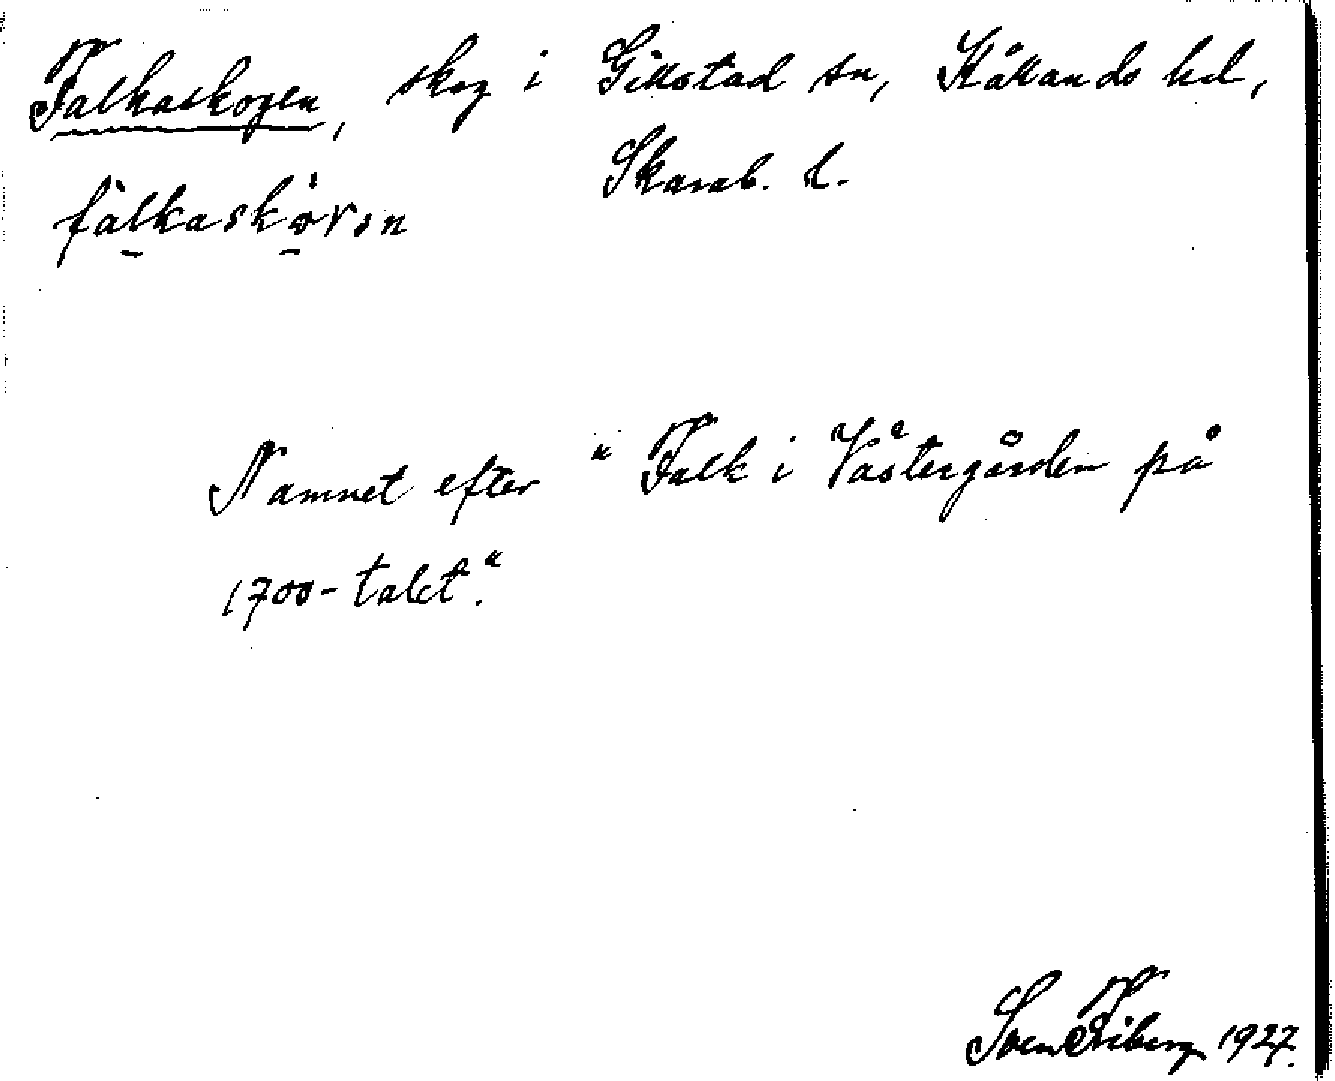 Falkaskogen, skog i Gillstad sn, Kållands hd,
Skarab. l.
fàlkaskòvən
Namnet efter "Falk i Västergården på
1700-talet."
Sven Friberg 1927.